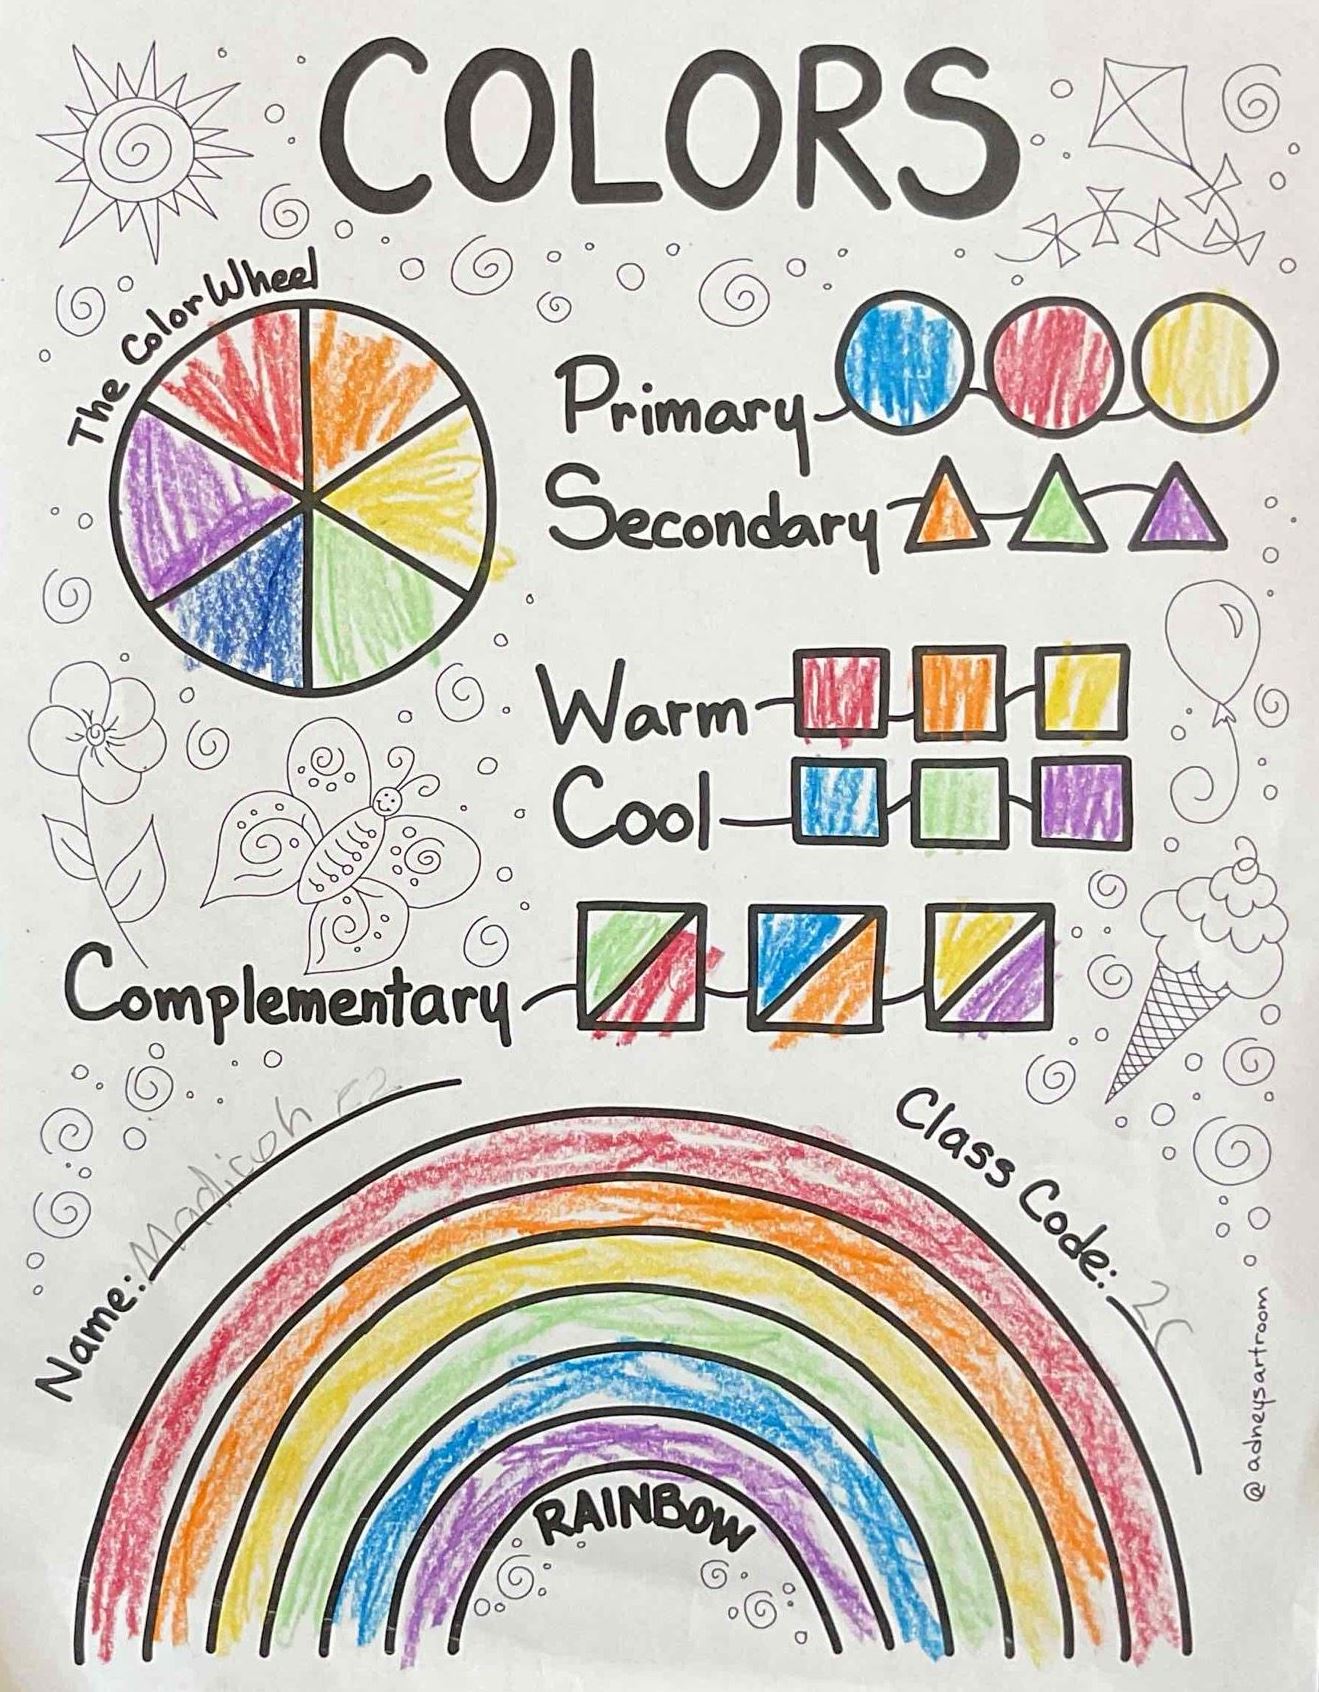 COLORS
The Color Wheel
Primary
Secondary
Warm
Cool
Complementary
Name:
Class Code: 2C
RAINBOW
@adneysartroom